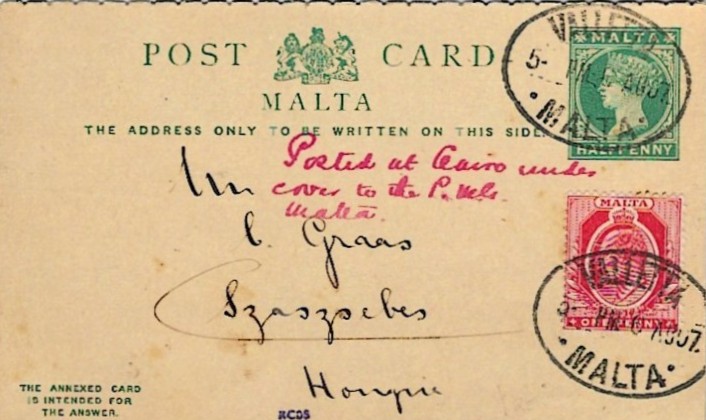 POST CARD
MALTA
THE ADDRESS ONLY TO BE WRITTEN ON THIS SIDE.
MALTA
HALFPENNY
VALLETTA
5- PM 6 AU 07
MALTA
Posted at Cairo under
cover to the P. Mr.
Malta.
C. Graas
Szaszsebes
Hongrie
MALTA
ONE PENNY
VALLETTA
5- PM 6 AU 07
MALTA
THE ANNEXED CARD
IS INTENDED FOR
THE ANSWER.
RCDS